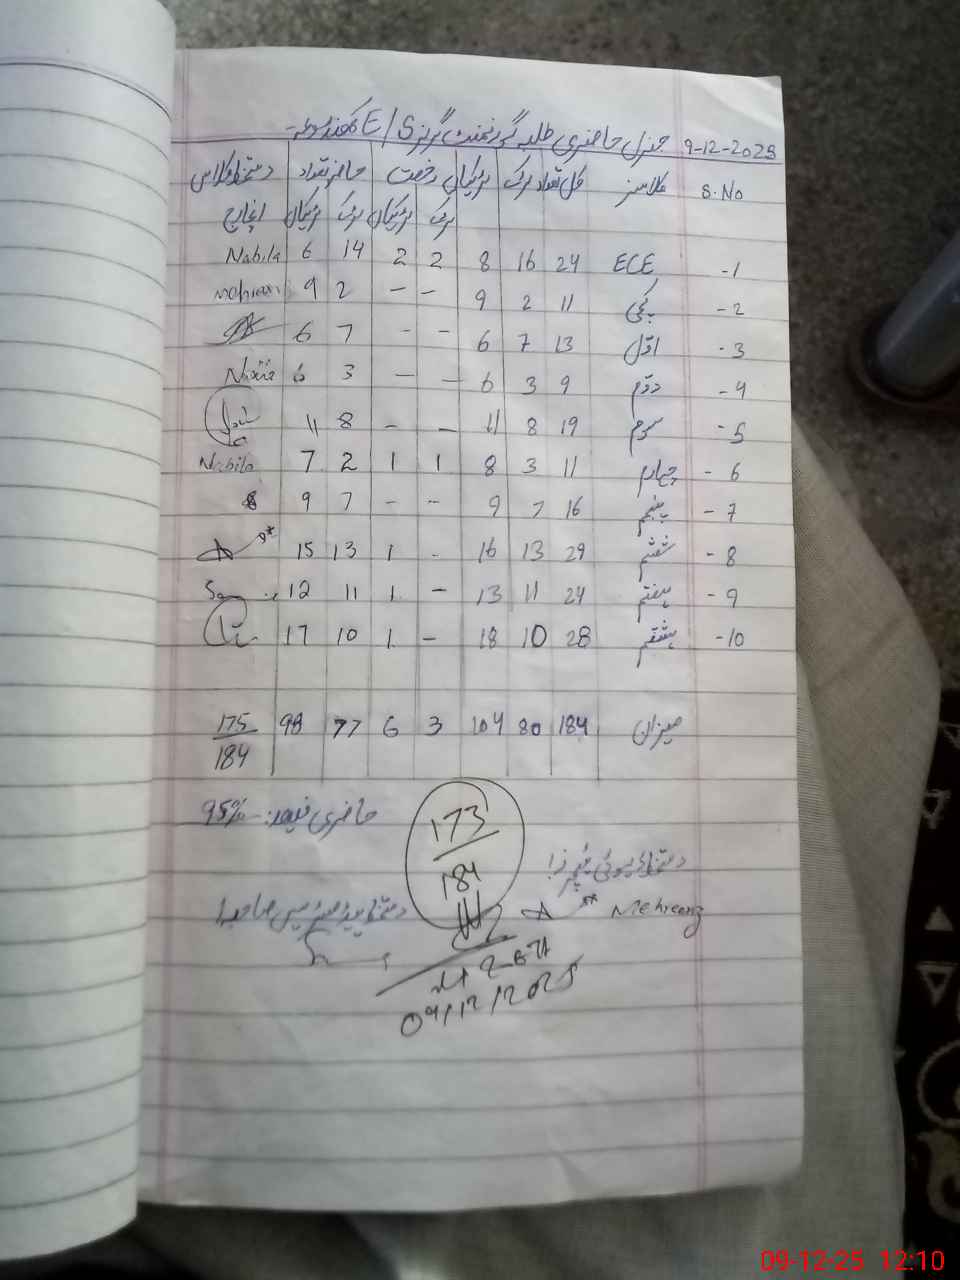 9-12-2025 جنرل حاضری طلبہ گورنمنٹ گرلز E/S
S.No کلاسز کل تعداد لڑکے لڑکیاں رخصت حاضر تعداد دستخط کلاس
لڑکے لڑکیاں لڑکے لڑکیاں انچارج
-1 ECE 24 16 8 2 2 14 6 Nabila
-2 پکی 11 2 9 - - 2 9 Mehreen
-3 اول 13 7 6 - - 7 6
-4 دوم 9 3 6 - - 3 6
-5 سوم 19 8 11 - - 8 11
-6 چہارم 11 3 8 1 1 2 7 Nabila
-7 پنجم 16 7 9 - - 7 9
-8 ششم 29 13 16 - 1 13 15
-9 ہفتم 24 11 13 - 1 11 12
-10 ہشتم 28 10 18 - 1 10 17
میزان 184 80 104 3 6 77 98 175/184
حاضری فیصد:- 95%
173/184
دستخط ڈیوٹی ٹیچرز!
Mehreen
دستخط ہیڈ مسٹریس صاحبہ!
09/12/2025
09-12-25 12:10